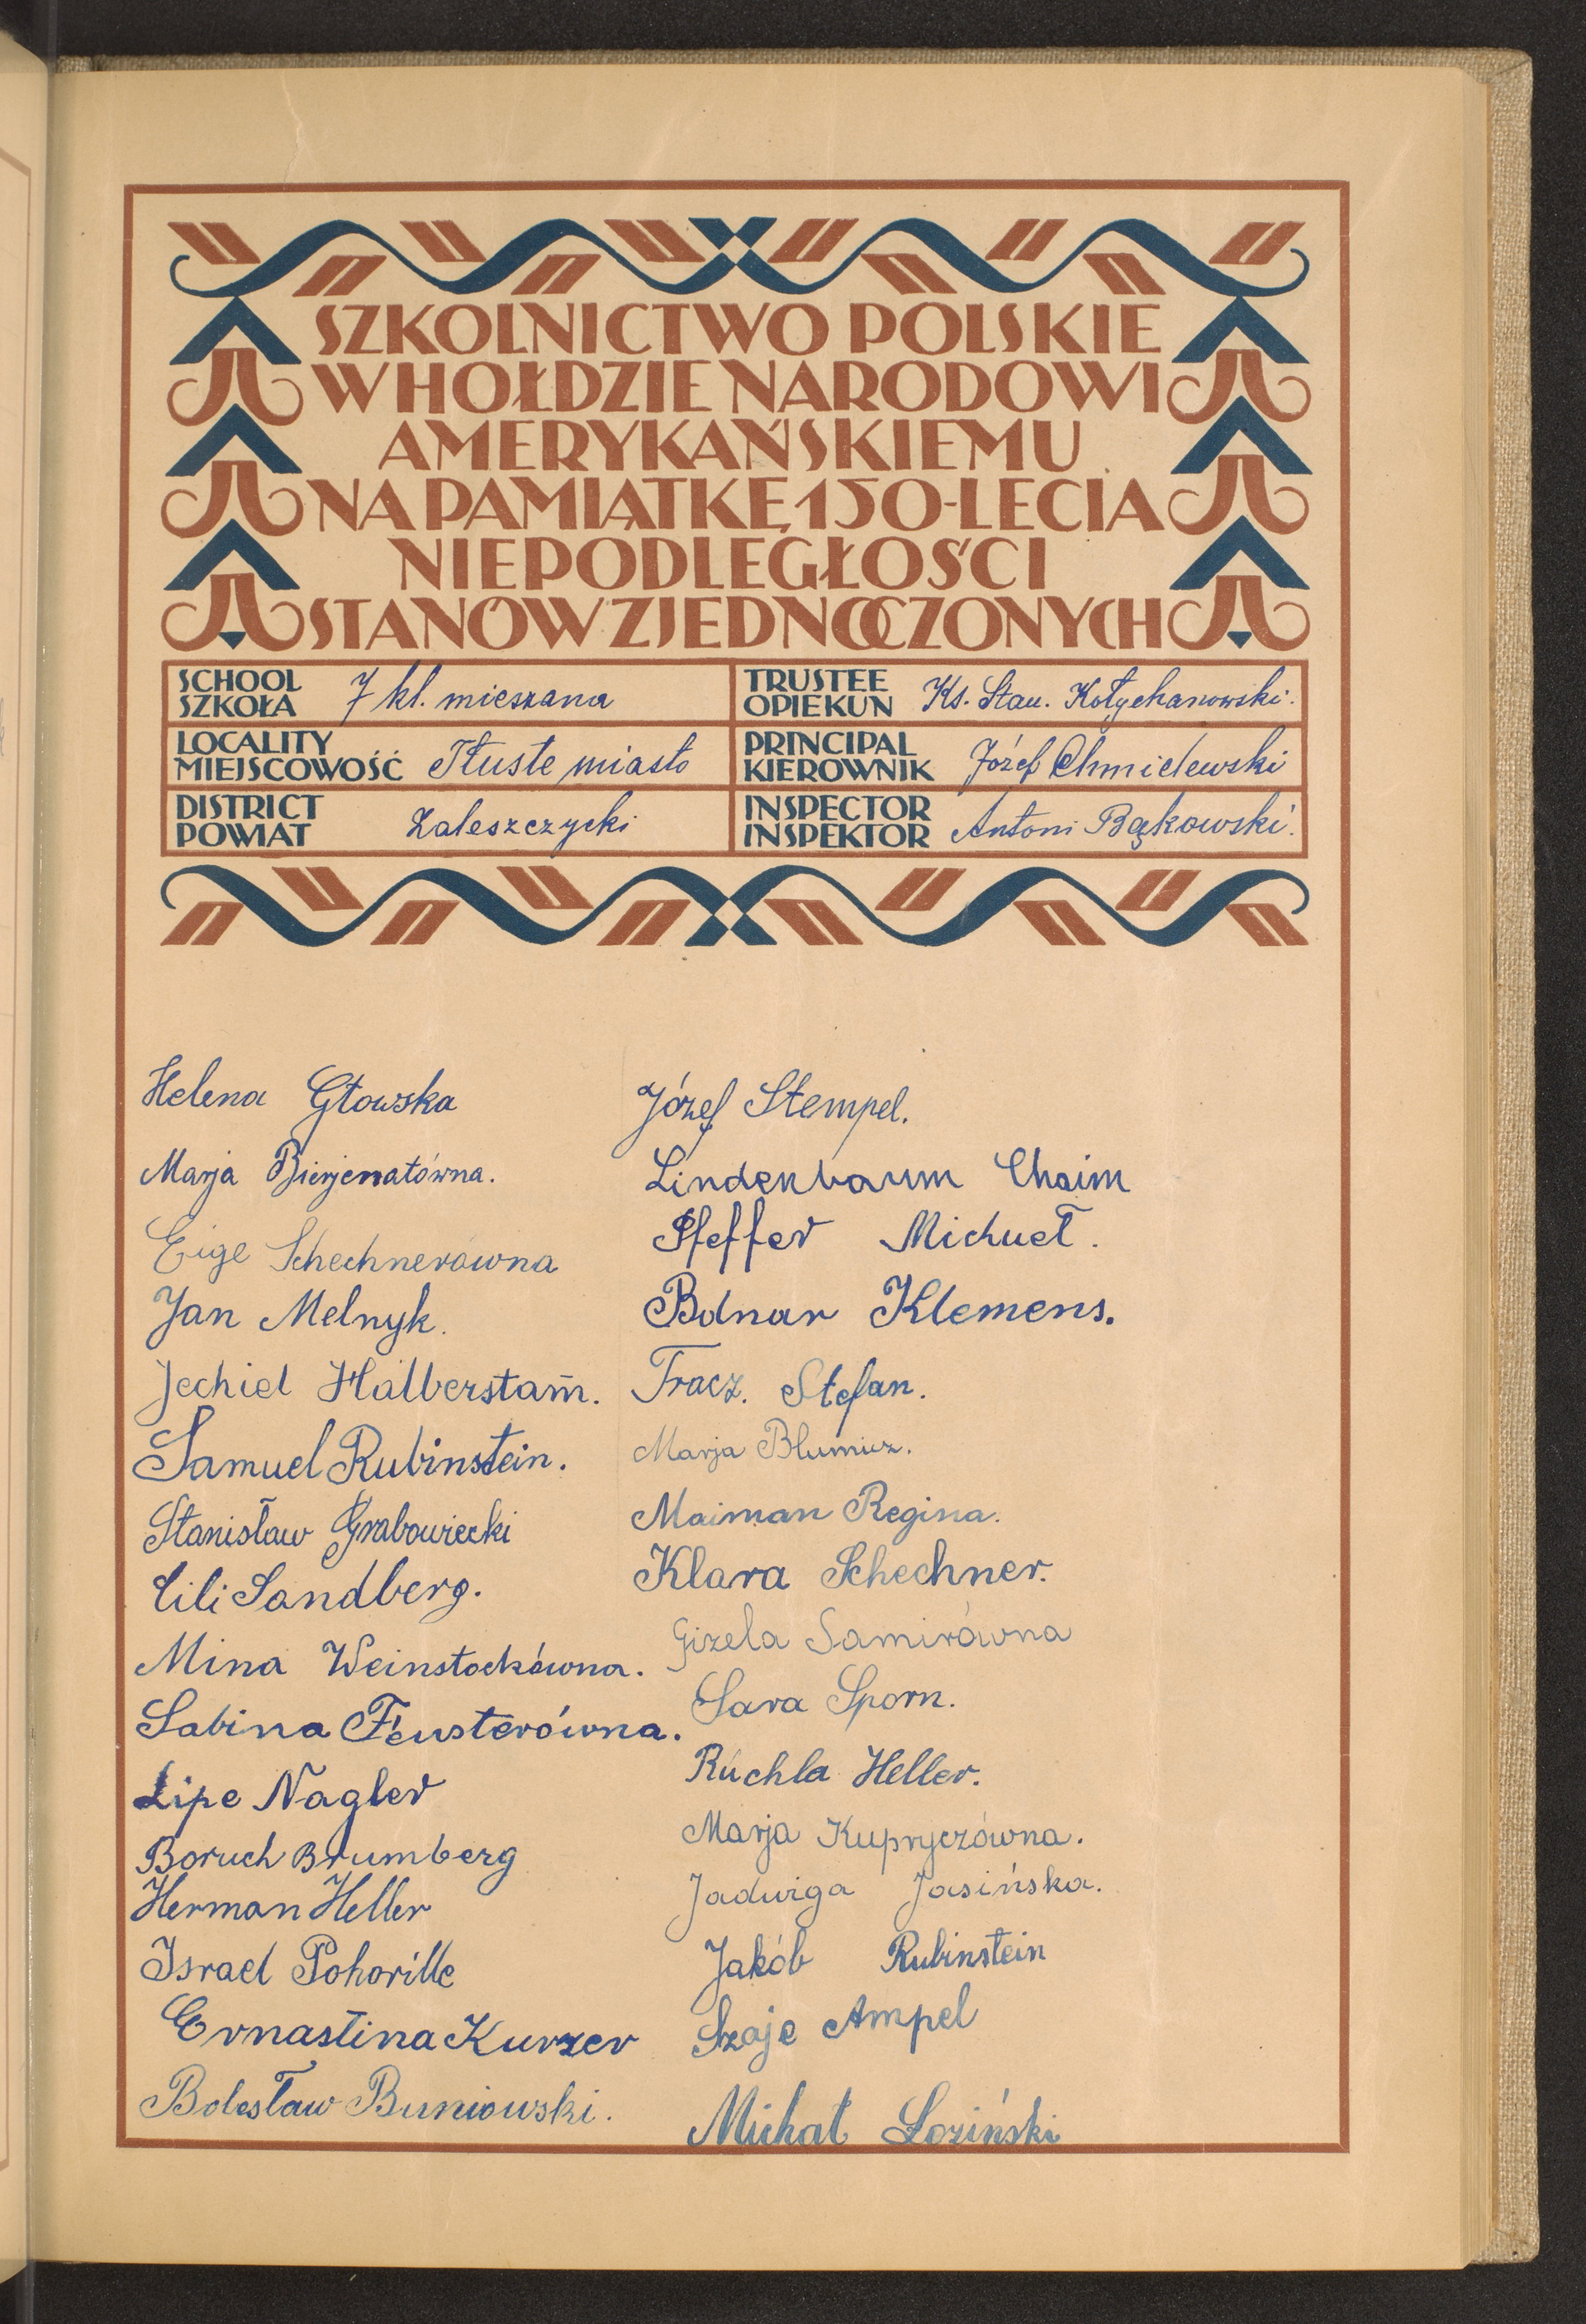 SZKOLNICTWO POLSKIE
W HOŁDZIE NARODOWI
AMERYKAŃSKIEMU
NA PAMIĄTKĘ 150-LECIA
NIEPODLEGŁOŚCI
STANÓW ZJEDNOCZONYCH
SCHOOL
SZKOŁA 7 kl. mieszana
TRUSTEE
OPIEKUN Ks. Stan. Kołychanowski.
LOCALITY
MIEJSCOWOŚĆ Tłuste miasto
PRINCIPAL
KIEROWNIK Józef Chmielewski
DISTRICT
POWIAT Zaleszczycki
INSPECTOR
INSPEKTOR Antoni Bąkowski.
Helena Głowska
Marja
Eige Schechnerówna
Jan Melnyk.
Jechiel Halberstam.
Samuel Rubinstein.
Stanisław Grabowiecki
Lili Sandberg.
Mina Weinstockówna.
Sabina Feusterówna.
Lipe Nagler
Boruch Brumberg
Herman Heller
Israel Pohorille
Ernastina Kurzer
Bolesław Buniowski.
Józef Stempel.
Lindenbaum Chaim
Pfeffer Michuel.
Bdnar Klemens.
Tracz. Stefan.
Marja
Maiman Regina.
Klara Schechner.
Gizela Samirówna
Sara Sporn.
Ruchla Heller.
Marja Kupryczówna.
Jadwiga Jasińska.
Jakób Rubinstein
Szaje Ampel
Michał Łoziński